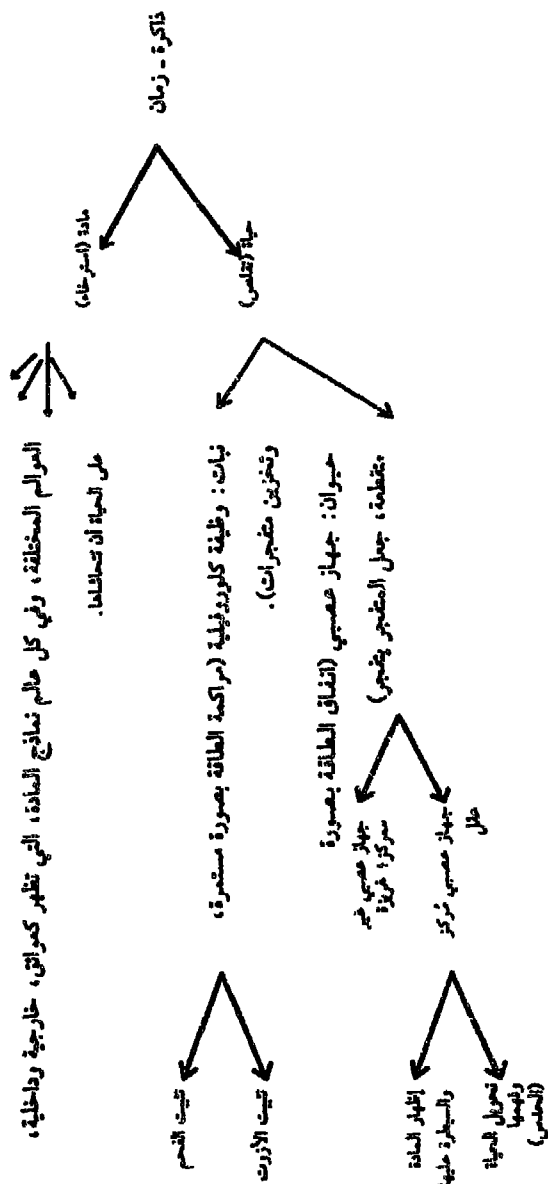 ذاكرة - زمان
مادة (استرخاء)
حياة (تقلص)
العوالم المختلفة، وفي كل عالم نماذج المادة، التي تظهر كعوائق، خارجية وداخلية،
على الحياة أن تتحاشاها.
نبات: وظيفة كلوروفيلية (مراكمة الطاقة بصورة مستمرة،
وتخزين متفجرات).
حيوان: جهاز عصبي (انفاق الطاقة بصورة
متقطعة، جعل المتفجر ينفجر)
جهاز عصبي غير
ممركز: غريزة
جهاز عصبي مُركز
عقل
تثبيت الفحم
تثبيت الأزوت
إظهار المادة
والسيطرة عليها
تحويل الحياة
وفهمها
(الحدس)